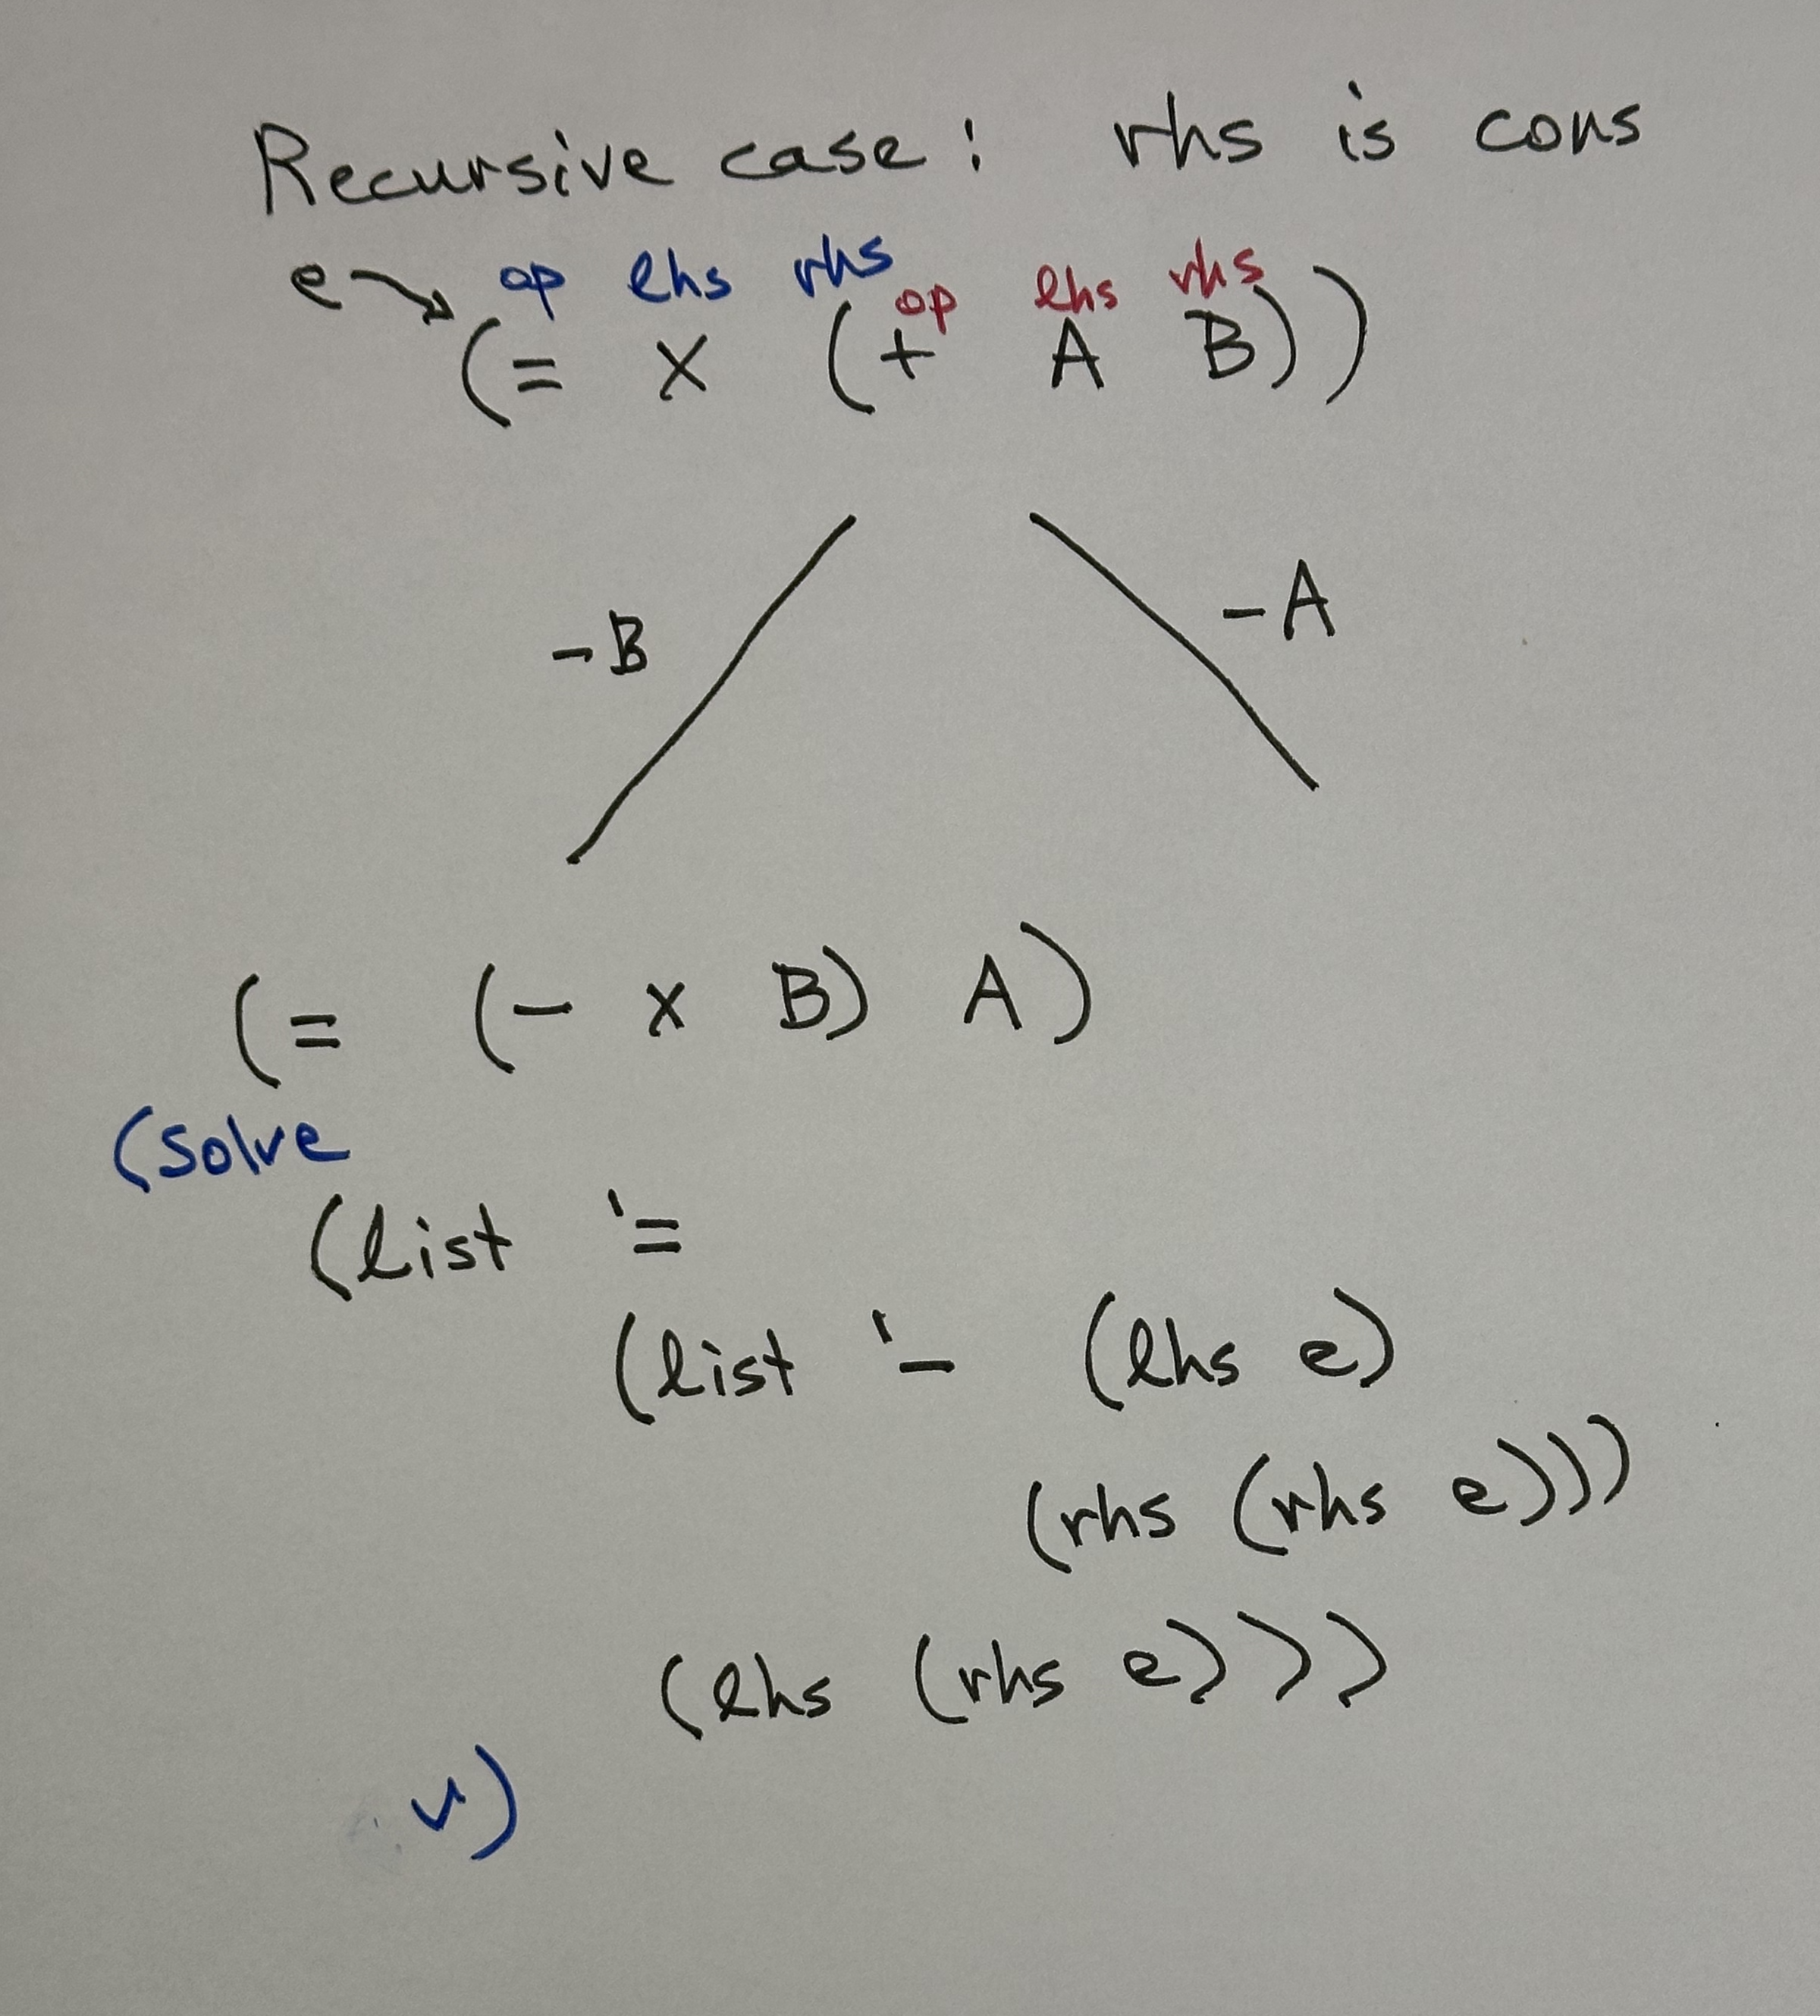 Recursive case: rhs is cons
e op lhs rhs
op lhs rhs
(= X (+ A B))
-B -A
(= (- x B) A)
(solve
(list '=
(list '- (lhs e)
(rhs (rhs e)))
(lhs (rhs e)))
v)